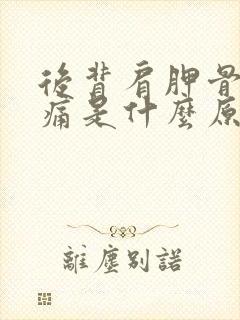 後背肩胛骨
痛是什麼原
離塵別諾